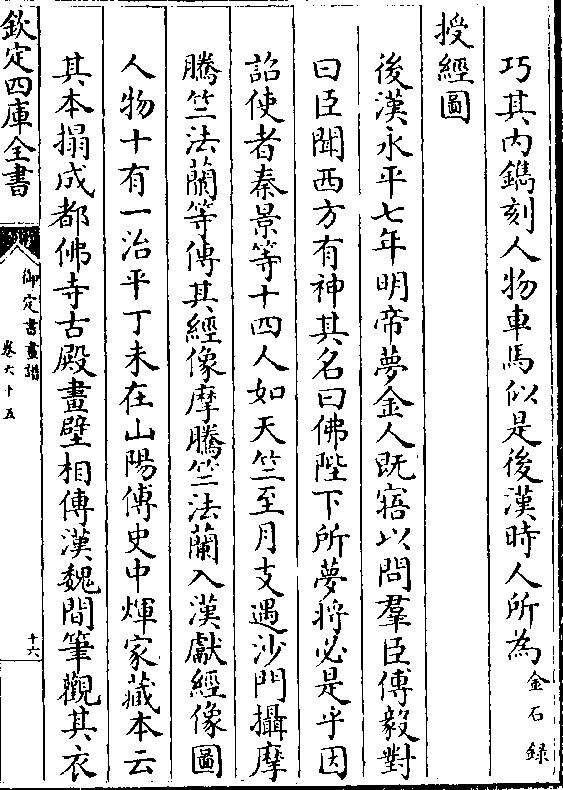 巧其内鐫刻人物車馬似是後漢時人所為金石録
授經圖
後漢永平七年明帝夢金人既寤以問羣臣傅毅對
曰臣聞西方有神其名曰佛陛下所夢將必是乎因
詔使者秦景等十四人如天竺至月支遇沙門攝摩
騰竺法蘭等傳其經像摩騰竺法蘭入漢獻經像圖
人物十有一治平丁未在山陽傅史中煇家藏本云
其本搨成都佛寺古殿畫壁相傳漢魏間筆觀其衣
欽定四庫全書
御定書畫譜
卷六十五
十六